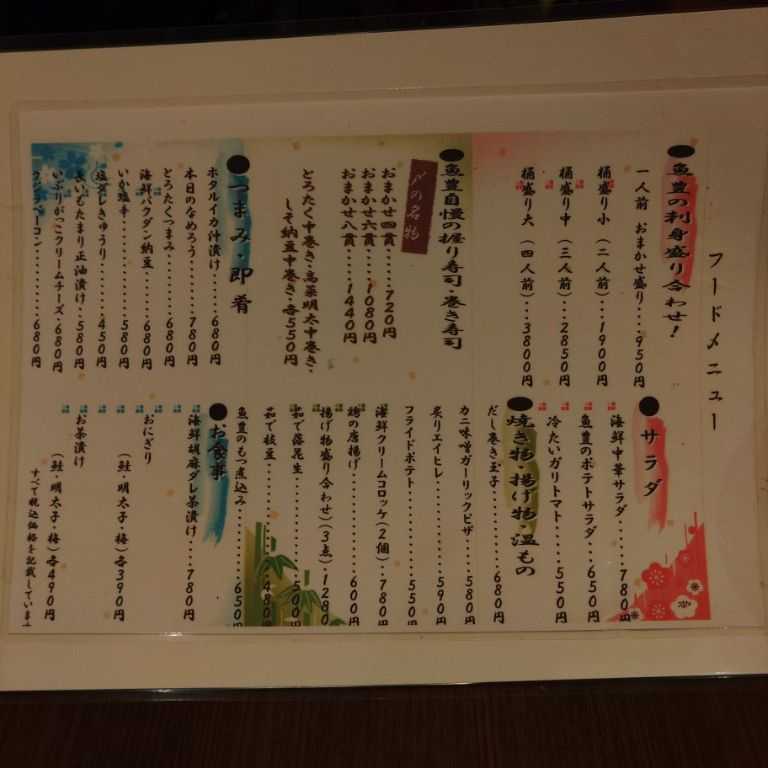 フードメニュー
●魚豊の刺身盛り合わせ!
一人前 おまかせ盛り・・・950円
桶盛り小(二人前)・・・1900円
桶盛り中(三人前)・・・2850円
桶盛り大(四人前)・・・3800円
●サラダ
海鮮中華サラダ・・・・780円
魚豊のポテトサラダ・・・650円
冷たいガリトマト・・・・550円
●魚豊自慢の握り寿司・巻き寿司
の名物
おまかせ四貫・・・720円
おまかせ六貫・・・1080円
おまかせ八貫・・・1440円
とろたく中巻き・高菜明太中巻き・
しそ納豆中巻き・各550円
●焼き物・揚げ物・温もの
だし巻き玉子・・・・・・680円
カニ味噌ガーリックピザ・・・580円
炙りエイヒレ・・・・・・590円
フライドポテト・・・・・550円
海鮮クリームコロッケ(2個)・・780円
鶏の唐揚げ・・・・・・・600円
揚げ物盛り合わせ(3点)1280
茹で落花生・・・・・・・500円
茹で枝豆・・・・・・・・480円
魚豊のもつ煮込み・・・・・650円
●つまみ・即肴
ホタルイカ沖漬け・・・・680円
本日のなめろう・・・・・780円
とろたくつまみ・・・・・680円
海鮮バクダン納豆・・・・680円
いか塩辛・・・・・・・・580円
塩ダレきゅうり・・・・・450円
長いもたまり正油漬け・・・580円
いぶりがっこクリームチーズ・680円
クジラベーコン・・・・・・680円
●お食事
海鮮胡麻ダレ茶漬け・・・780円
おにぎり
(鮭・明太子・梅)各390円
お茶漬け
(鮭・明太子・梅)各490円
すべて税込価格を記載しています